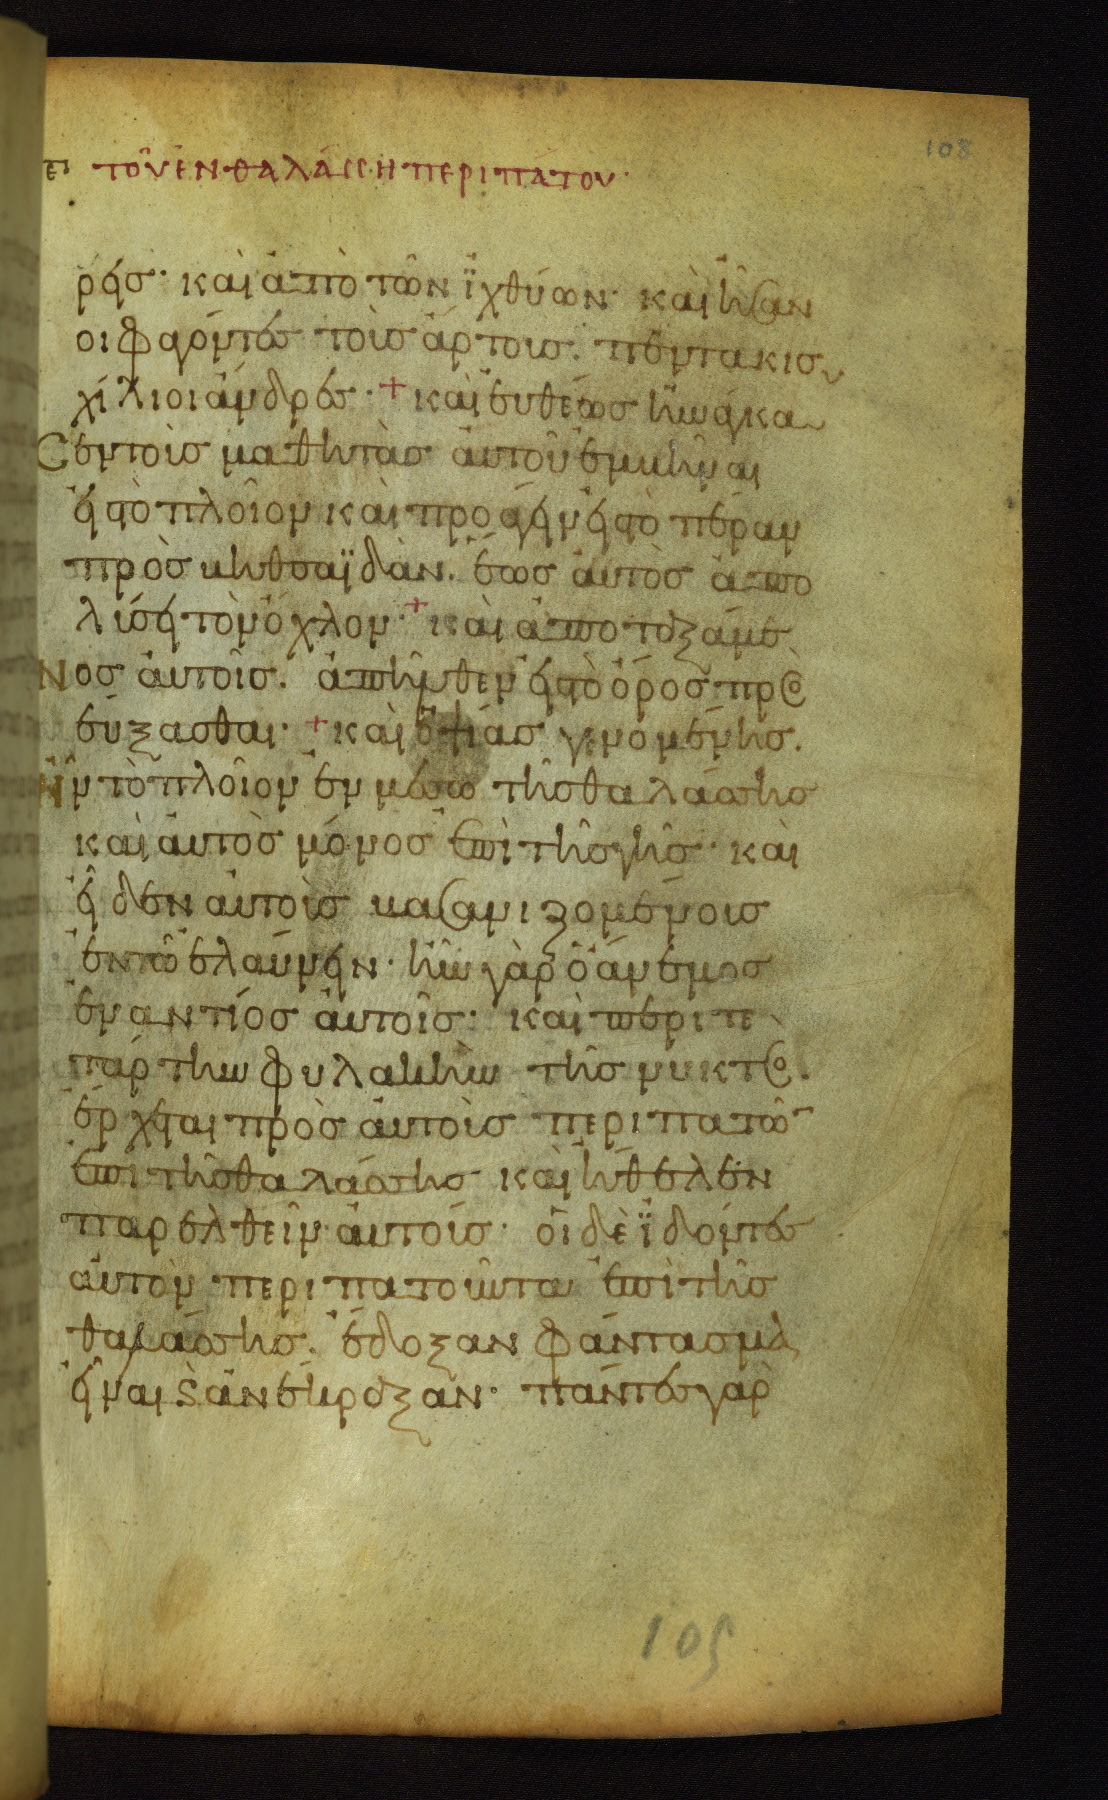 108
τοῦ ἐν θαλάσσῃ περιπάτου·
ρεις· καὶ ἀπὸ τῶν ἰχθύων· καὶ ἦσαν
οι φαγόντες τοὺς ἄρτους· πεντακισ
χίλιοι ἄνδρες· + καὶ εὐθέως ἠνάγκα
σεν τοὺς μαθητὰς αὐτοῦ ἐμβῆναι
εἰς τὸ πλοῖον καὶ προάγειν εἰς τὸ πέραν
πρὸς βηθσαϊδάν. ἕως αὐτὸς ἀπο
λύσει τὸν ὄχλον· + καὶ ἀποταξάμε
νος αὐτοῖς. ἀπῆλθεν εἰς τὸ ὄρος προς
εύξασθαι· + καὶ ὀψίας γενομένης.
ἦν τὸ πλοῖον ἐν μέσω τῆς θαλάσσης
καὶ αὐτὸς μόνος ἐπὶ τῆς γῆς· καὶ
εἶδεν αὐτοὺς βασανιζομένους
ἐν τῶ ἐλαύνειν· ἦν γὰρ ὁ ἄνεμος
ἐναντίος αὐτοῖς· καὶ περὶ τε
τάρτην φυλακὴν τῆς νυκτος.
ἔρχεται πρὸς αὐτοὺς περιπατῶν
ἐπὶ τῆς θαλάσσης· καὶ ἤθελεν
παρελθεῖν αὐτούς· οἱ δὲ ἰδόντες
αὐτὸν περιπατοῦντα ἐπὶ τῆς
θαλάσσης. ἔδοξαν φάντασμα
εἶναι καὶ ἀνέκραξαν· πάντες γὰρ
105